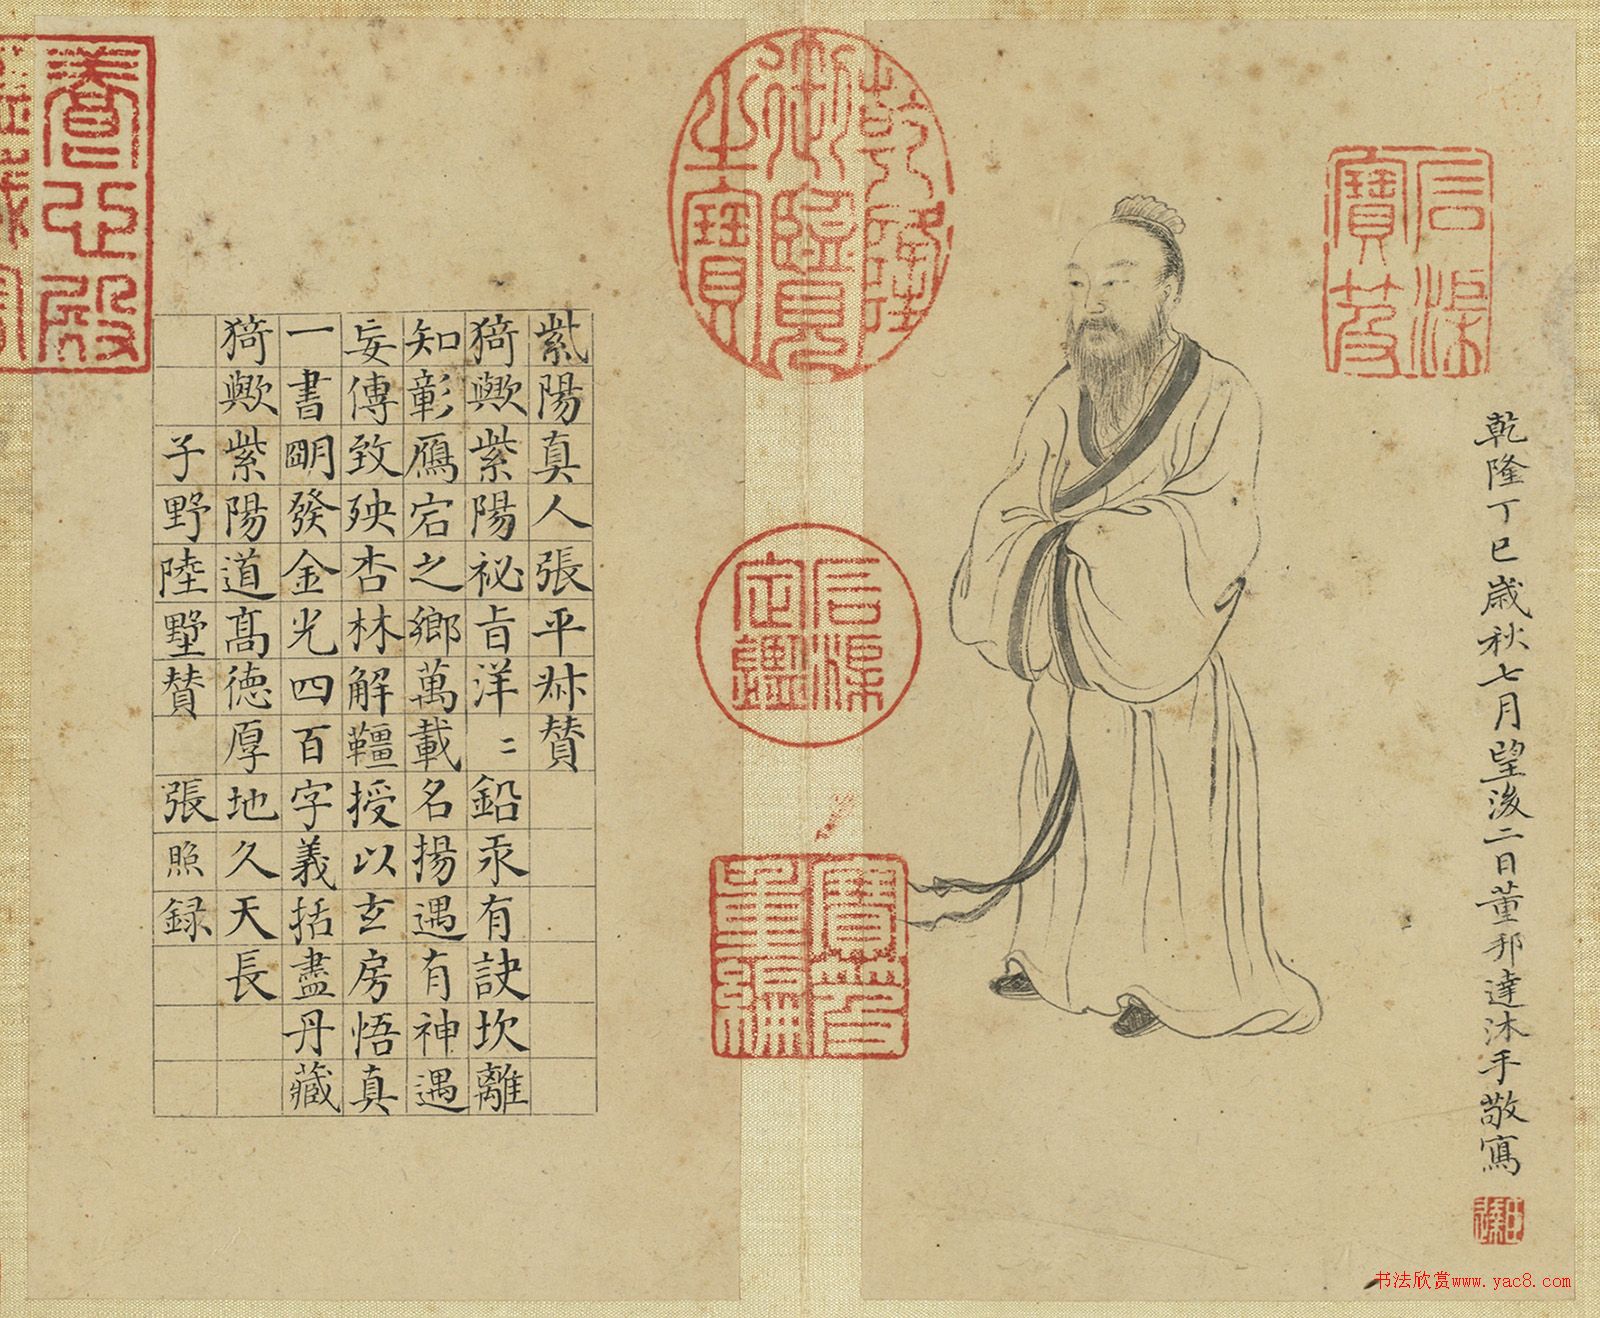 乾隆丁巳歲秋七月望後二日董邦達沐手敬寫
石渠寶笈
乾隆御覽之寶
石渠定鑑
寶笈重編
紫陽真人張平叔贊
猗歟紫陽祕旨洋〻鉛汞有訣坎離
知彰鴈宕之鄉萬載名揚遇有神遇
妄傳致殃杏林解韁授以玄房悟真
一書朙發金光四百字義括盡丹藏
猗歟紫陽道髙德厚地久天長
子野陸墅贊 張照録
養心殿
书法欣赏www.yac8.com